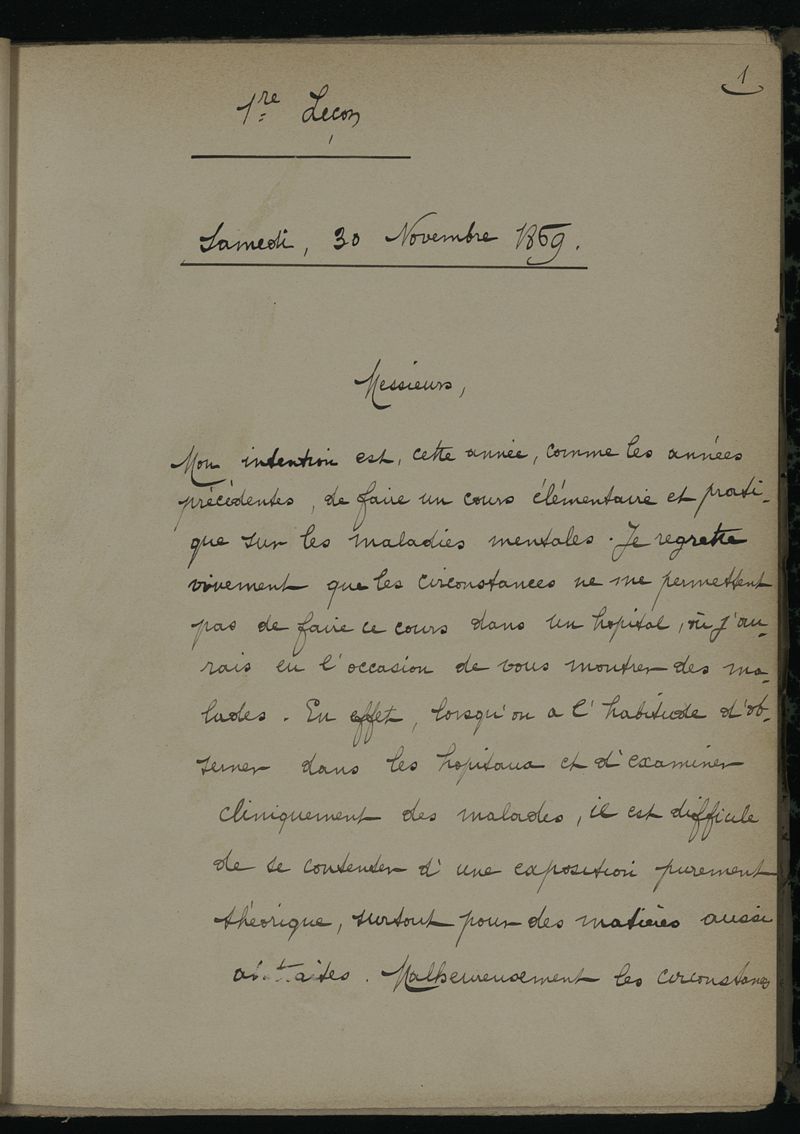 1
1re Leçon
Samedi, 30 Novembre 1869.
Messieurs,
Mon intention est, cette année, comme les années
précédentes, de faire un cours élémentaire et prati-
que sur les maladies mentales. Je regrette
vivement que les circonstances ne me permettent
pas de faire ce cours dans un hopital, où j'au-
rais eu l'occasion de vous montrer des ma-
lades. En effet, lorsqu'on a l'habitude d'ob-
server dans les hopitaux et d'examiner
cliniquement des malades, il est difficile
de se contenter d'une exposition purement
théorique, surtout pour des matières aussi
. Malheureusement les circonstances